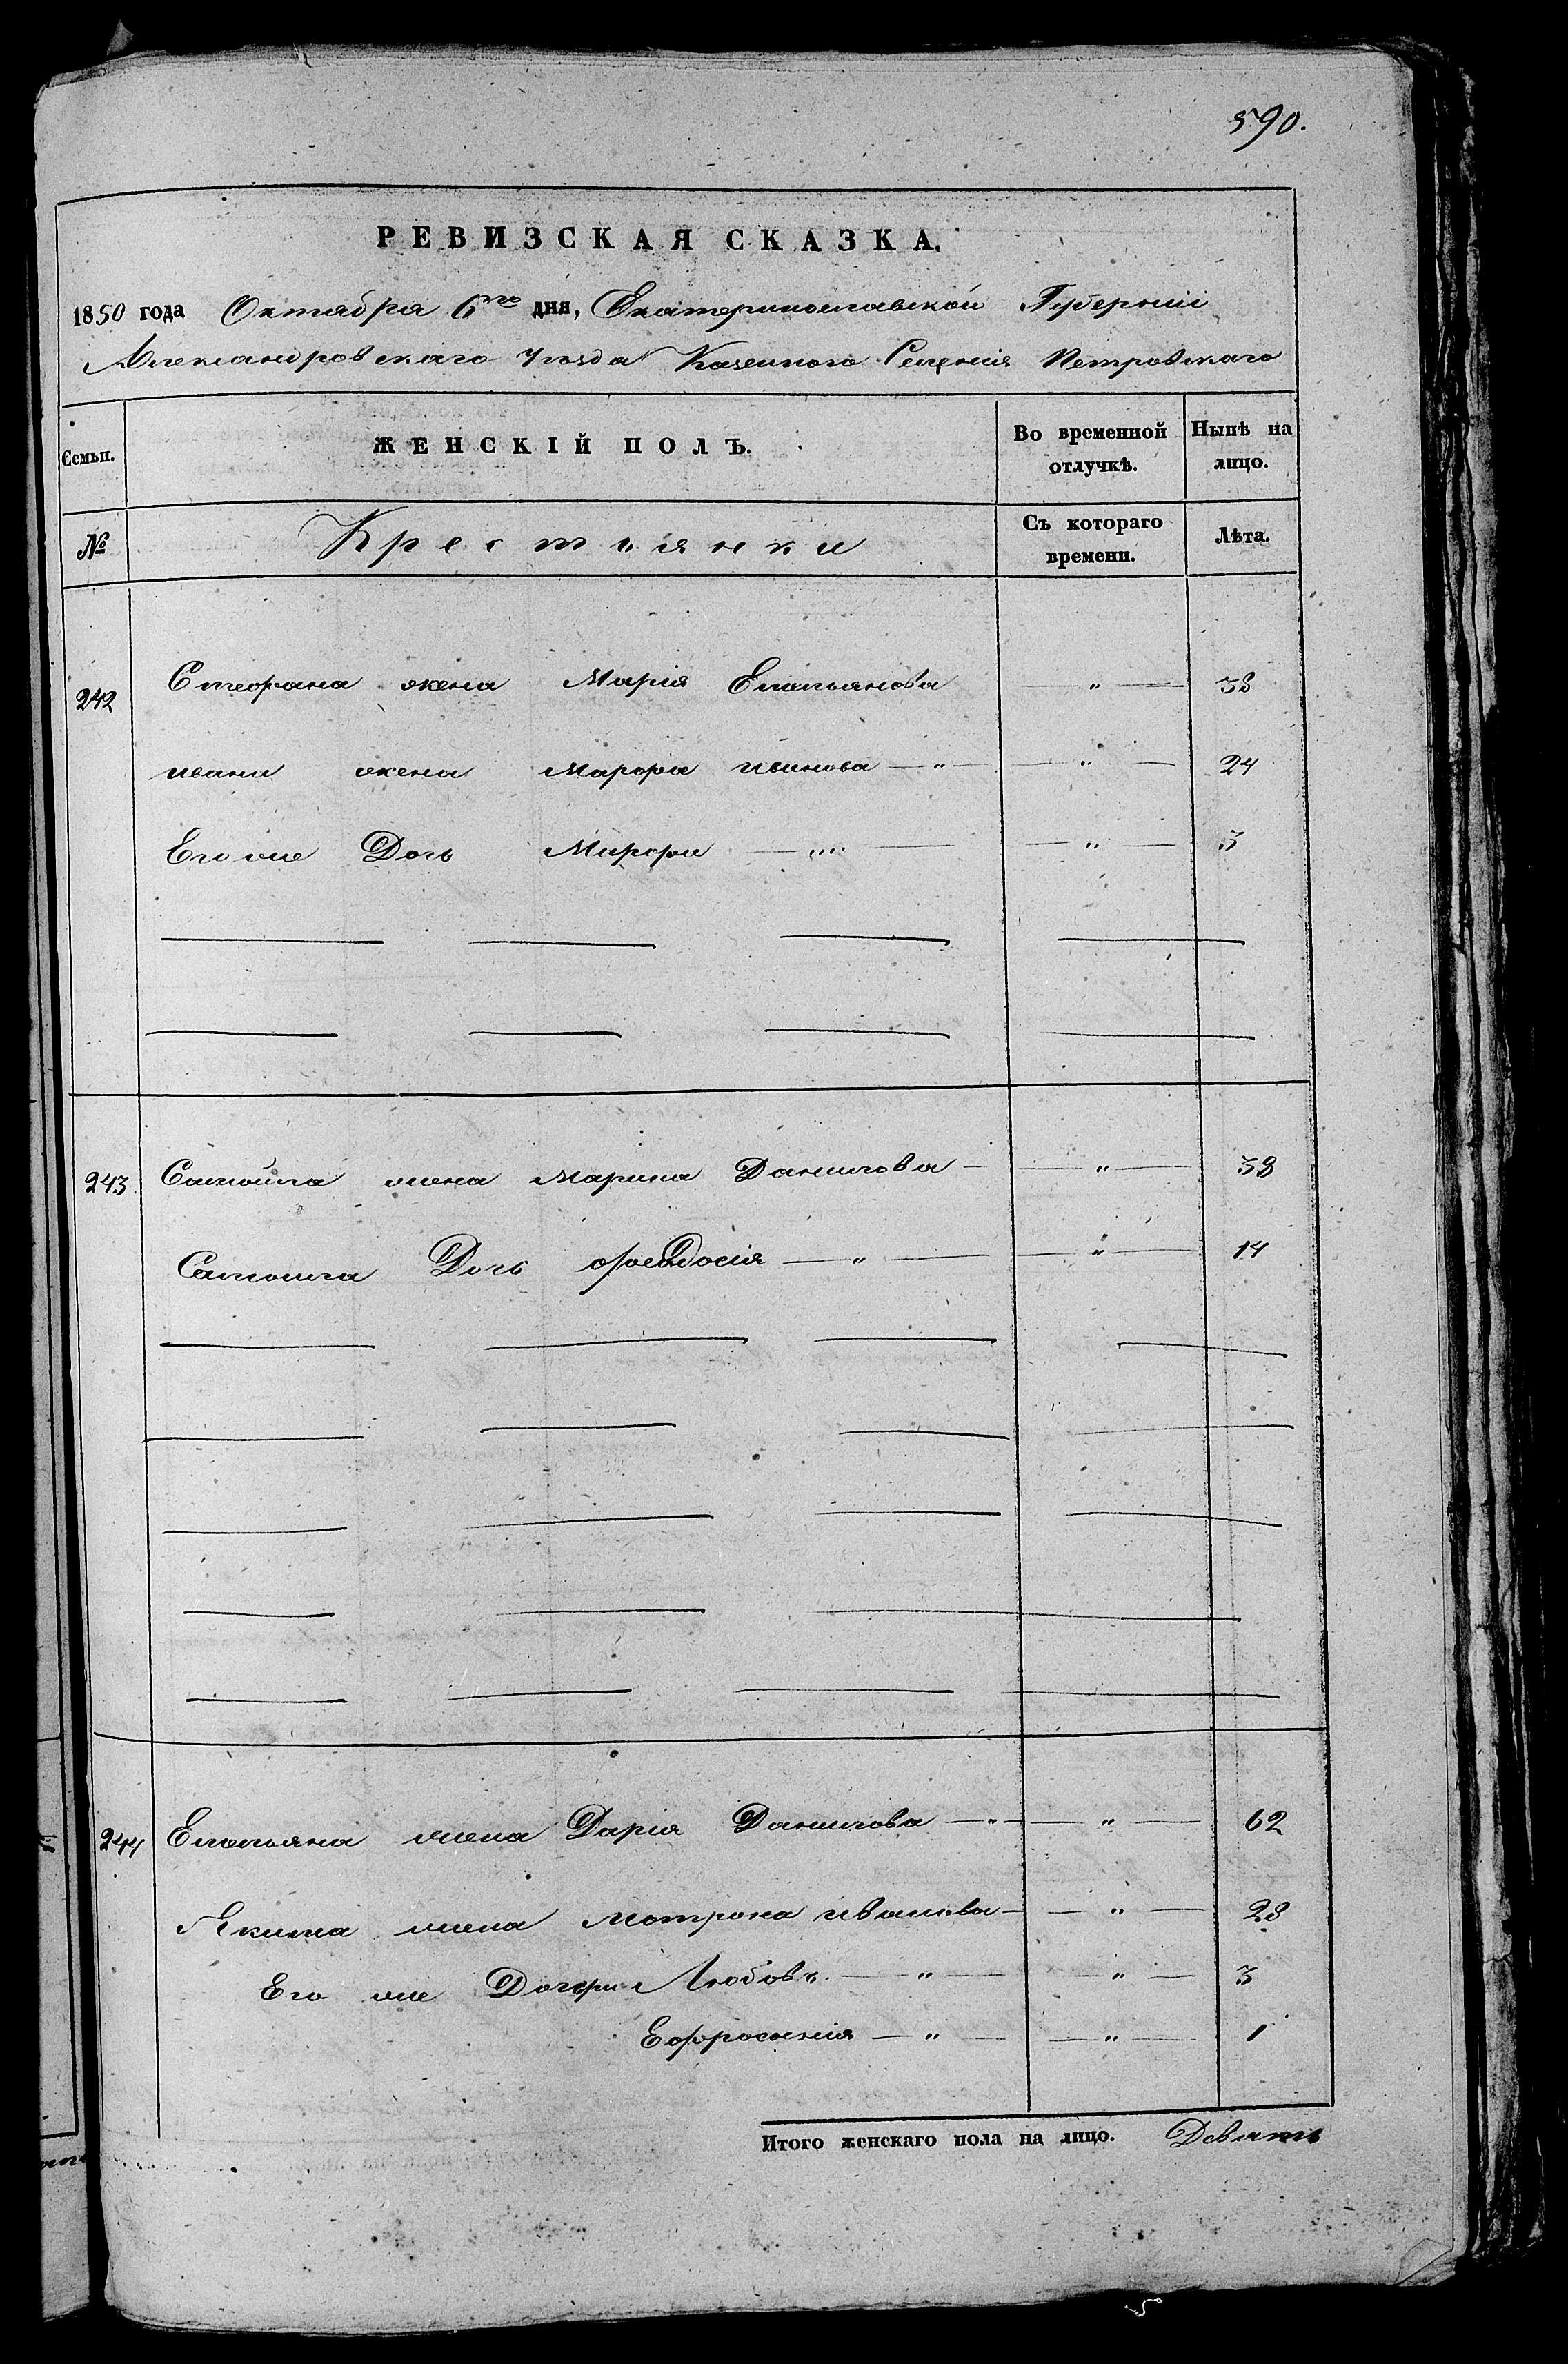 590.
РЕВИЗСКАЯ СКАЗКА.
1850 года Октября 6го дня, Екатеринославской Губерніи
Александровскаго Уезда Казенного Селенія Петровскаго
Семьи. ЖЕНСКІЙ ПОЛЪ. Во временной отлучкѣ. Нынѣ на лицо.
№ Крестьянки Съ котораго времени. Лѣта.
242 Стефана жена Марія Емельянова — " — 38
Ивана жена Марфа Иванова — " — — " — 24
Его же Дочь Марфа — "" — — " — 3
243 Самойла жена Марина Данилова — — " — 38
Самойла Дочь Феодосія — " — — " — 14
244 Емельяна жена Дарія Данилова — " — — " — 62
Якима жена Мотрона Иванова — — " — 28
Его же Дочери Любовь. — " — — " — 3
Ефросинія — " — — " — 1
Итого женскаго пола на лицо. Девять